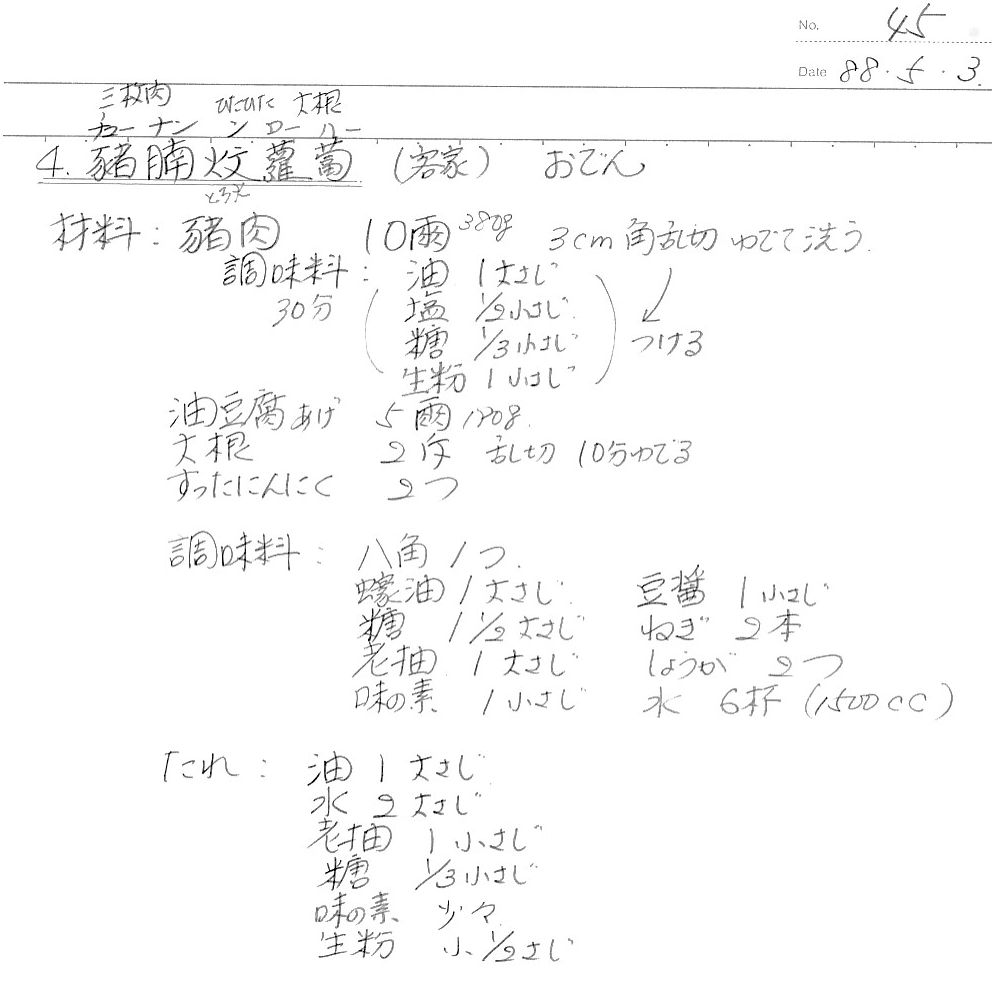 No. 45
Date 88・5・3.
三枚肉 ひたひた 大根
チューナン ン ローバー
4. 豬腩炆蘿蔔 (客家) おでん
とろ火
材料: 豬肉 10両 380g 3cm角乱切 ゆでて洗う.
調味料: 油 1大さじ
30分 塩 1/2小さじ
糖 1/3小さじ つける
生粉 1小さじ
油豆腐あげ 5両 190g.
大根 2斤 乱切 10分ゆでる
すったにんにく 2つ
調味料: 八角 1つ.
蠔油 1大さじ 豆醤 1小さじ
糖 1 1/2大さじ ねぎ 2本
老抽 1大さじ しょうが 2つ
味の素 1小さじ 水 6杯 (1500cc)
たれ: 油 1大さじ
水 2大さじ
老抽 1小さじ
糖 1/3小さじ
味の素 少々
生粉 小1/2さじ